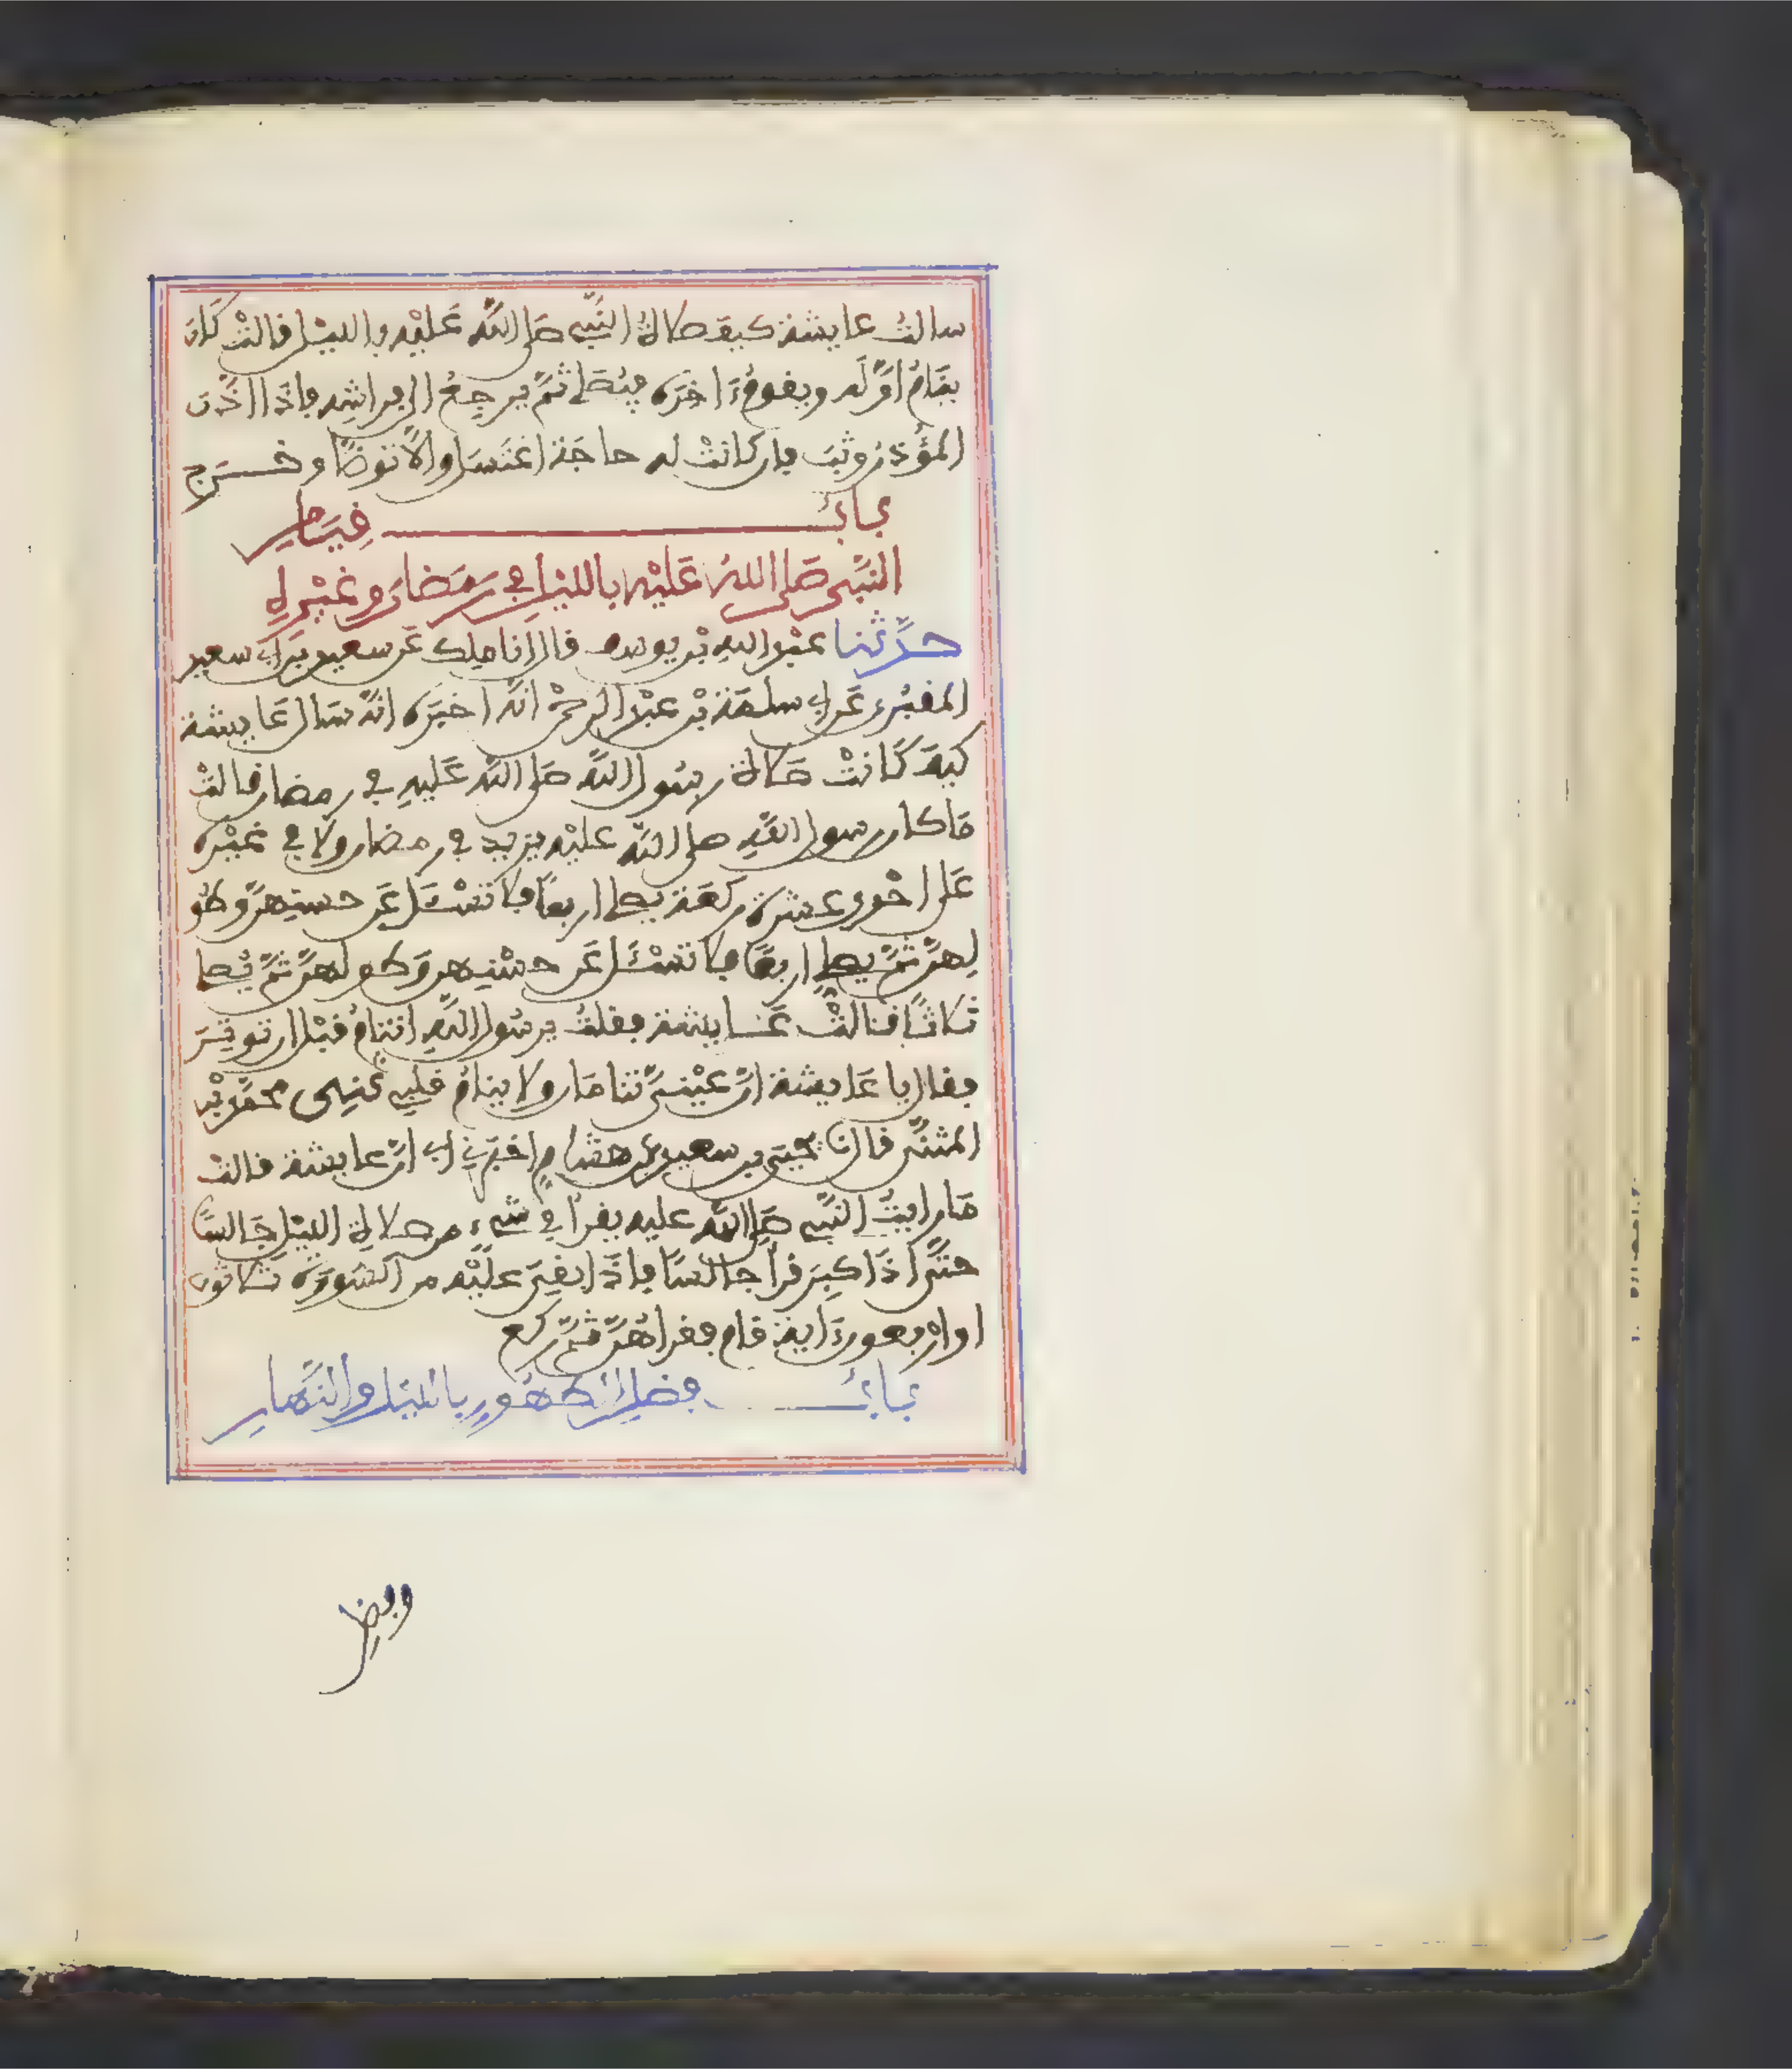 سالتُ عايشة كيف صلاةُ النَّبِي صَلى اللَّه عَلَيْه بالليْل قالتْ كَان
ينَامُ اوَّلَه ويقومُ ءَاخِرَه فيُصَلي ثُمَّ يرجِعُ الى فراشِه فإذَا اذَّن
المؤَذن وثَبَ فإن كانتْ له حاجَة اغتَسَل والاَّ توضَّا وخــرَج
بَابُ قِيَام
النَّبِي صَلى اللهُ عَلَيْه بالليْل في رَمَضَان وغَيْره
حدَّثنا عبْد اللهِ بْن يوسف قال انا ملك عَن سعيد بن ابي سعيد
المقبُري عَن ابي سلمَة بْن عبْد الرحمْن انَّه اخبَرَه انَّه سَال عَايشة
كيْفَ كَانتْ صَلاة رسُول اللَّه صَلى اللَّه عَليهِ في رمضان قالتْ
مَا كان رسول اللَّهِ صلى اللَّه عليْه يزيد في رمضان ولا في غيْره
عَلى احْدى عشرة ركعَة يصلي اربعًا فلا تسْئَل عَن حسنِهنَّ وطُو
لِهنَّ ثمَّ يصلي اربعًا فلا تسْئَل عَن حسْنِهن وَطولهنَّ ثمَّ يُصلي
ثلاثًا فقالتْ عَــايشة فقلتُ يرسُول اللَّهِ اتنَامُ قبْل ان توتِرَ
فقال يا عَايشة انَّ عيْنيَّ تنامَان ولا ينامُ قلبِي ثنى محمَّد بْن
المثنَّى قال نا يحيَى بن سعيد عن هشامٍ اخبَرَنِي ابي انَّ عايشة قالتْ
مَا رايتُ النَّبِي صَلى اللَّه عليه يقرأ في شيءٍ من صلاة الليْل جَالسًا
حتَّى اذَا كبِرَ قرأ جالسًا فإذَا بقِيَ علَيْه من السُورَة ثلاثون
او ارْبعون ءَاية قام فقراهُنَّ ثمَّ ركع
بَابُ فضل الطهُورِ بالليْل والنَّهارِ
وفضل